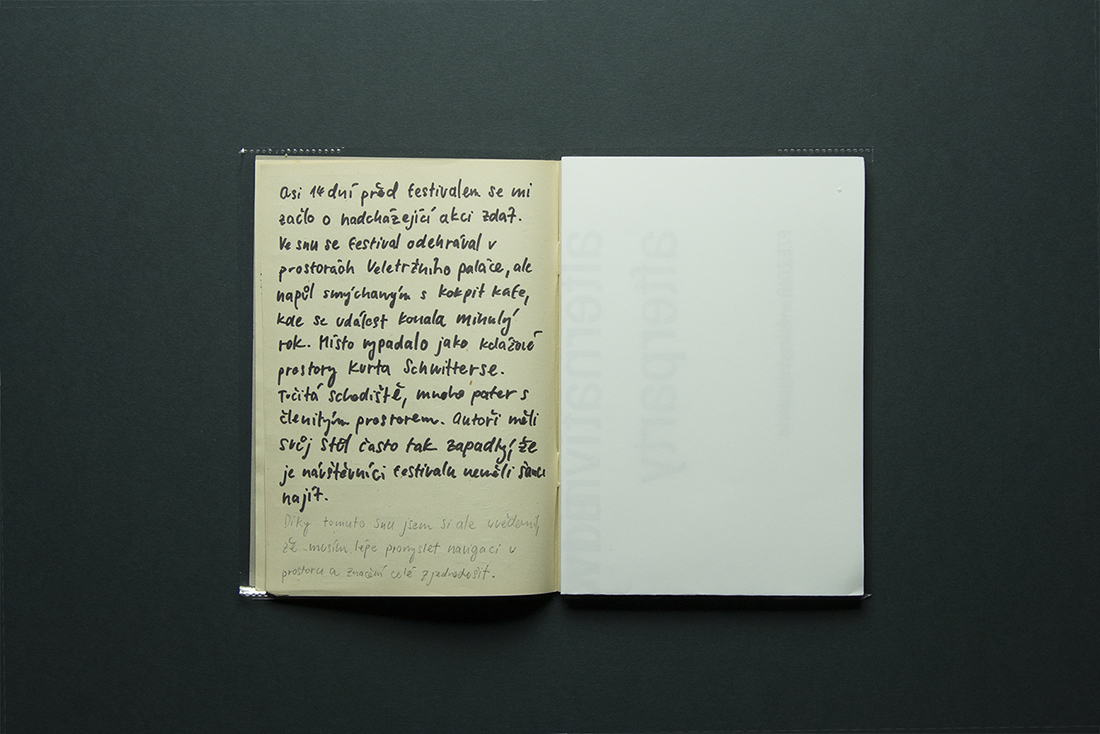 Asi 14 dní před festivalem se mi
začlo o nadcházející akci zdát.
Ve snu se festival odehrával v
prostorách Veletržního paláce, ale
napůl smýchaným s kokpit kafe,
kde se událost konala minulý
rok. Místo vypadalo jako kolážové
prostory Kurta Schwitterse.
Točitá schodiště, mnoho pater s
členitým prostorem. Autoři měli
svůj stůl často tak zapadlý, že
je návštěvníci festivalu neměli šanci
najít.
Díky tomuto snu jsem si ale uvědomil,
že musím lépe promyslet navigaci v
prostoru a značení celé zjednodušit.
afterparty